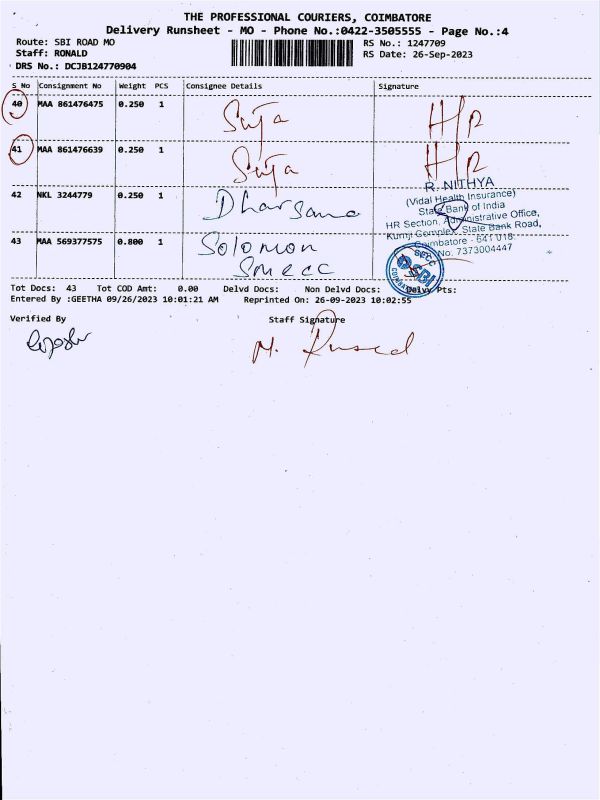 THE PROFESSIONAL COURIERS, COIMBATORE
Delivery Runsheet - MO - Phone No.:0422-3505555 - Page No.:4
Route: SBI ROAD MO
RS No.: 1247709
Staff: RONALD
RS Date: 26-Sep-2023
DRS No.: DCJB124770904
S No Consignment No Weight PCS Consignee Details Signature
40 MAA 861476475 0.250 1
41 MAA 861476639 0.250 1
R. NITHYA
(Vidal Health Insurance)
42 NKL 3244779 0.250 1 Dharsana
State Bank of India
HR Section, Administrative Office,
Kumji Complex, State Bank Road,
43 MAA 569377575 0.800 1 Solomon
Coimbatore - 641 018.
No. 7373004447
Smecc
SBI
Tot Docs: 43 Tot COD Amt: 0.00 Delvd Docs: Non Delvd Docs: Delvy Pts:
Entered By :GEETHA 09/26/2023 10:01:21 AM Reprinted On: 26-09-2023 10:02:55
Verified By Staff Signature